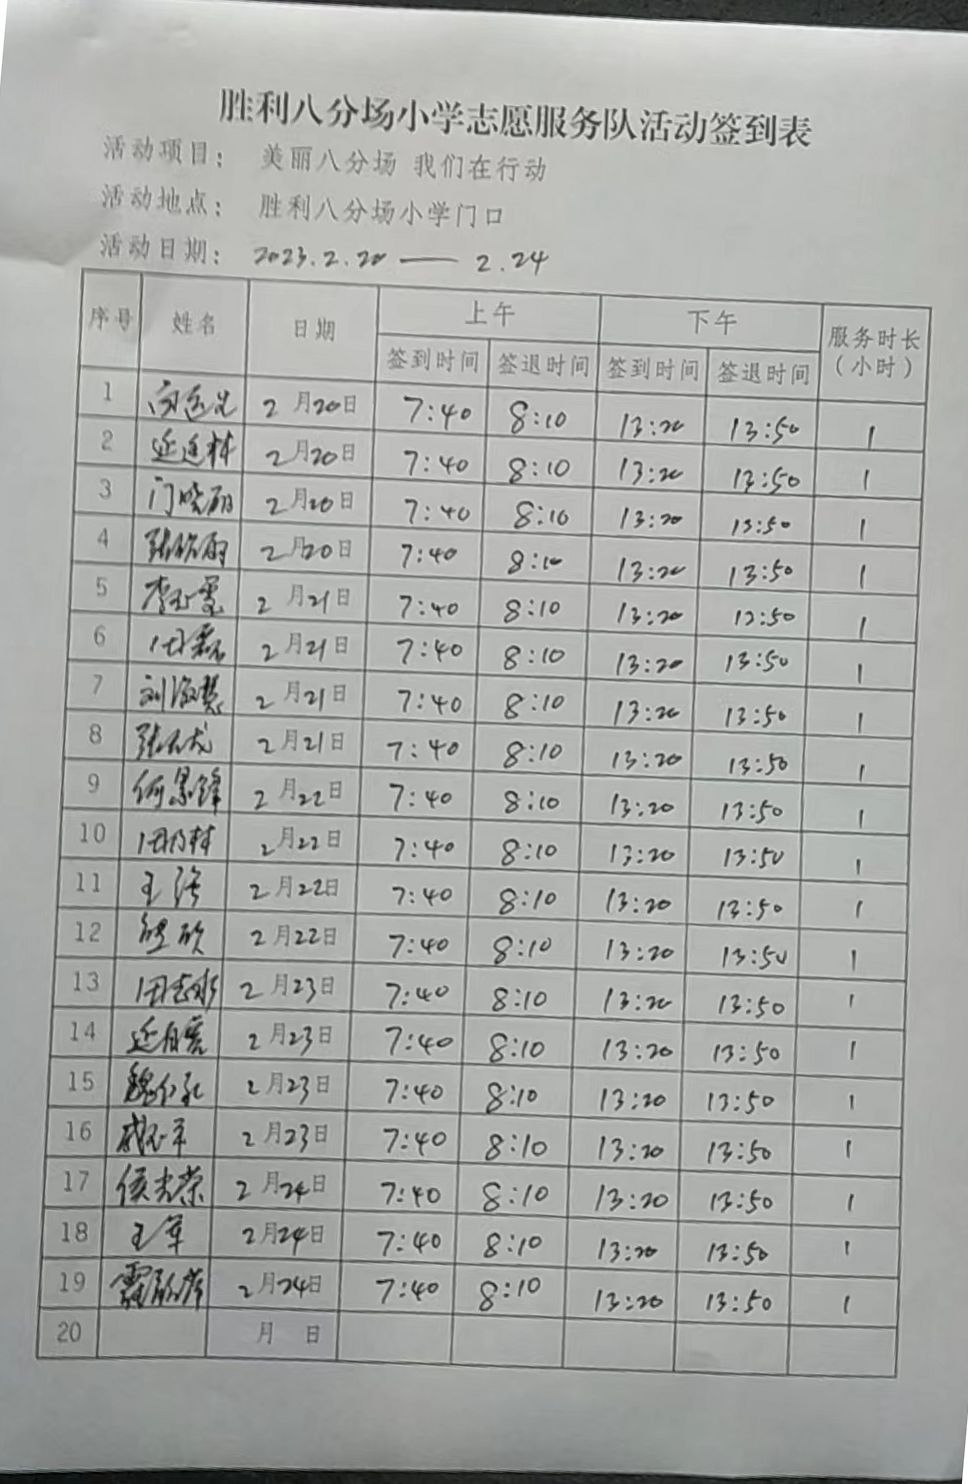 胜利八分场小学志愿服务队活动签到表
活动项目： 美丽八分场 我们在行动
活动地点： 胜利八分场小学门口
活动日期： 2023.2.20 — 2.24
序号 姓名 日期 上午 下午 服务时长（小时）
签到时间 签退时间 签到时间 签退时间
1 2月20日 7:40 8:10 13:20 13:50 1
2 2月20日 7:40 8:10 13:20 13:50 1
3 门晓丽 2月20日 7:40 8:10 13:20 13:50 1
4 2月20日 7:40 8:10 13:20 13:50 1
5 2月21日 7:40 8:10 13:20 13:50 1
6 田磊 2月21日 7:40 8:10 13:20 13:50 1
7 刘淑慧 2月21日 7:40 8:10 13:20 13:50 1
8 2月21日 7:40 8:10 13:20 13:50 1
9 何景锋 2月22日 7:40 8:10 13:20 13:50 1
10 2月22日 7:40 8:10 13:20 13:50 1
11 2月22日 7:40 8:10 13:20 13:50 1
12 2月22日 7:40 8:10 13:20 13:50 1
13 2月23日 7:40 8:10 13:20 13:50 1
14 2月23日 7:40 8:10 13:20 13:50 1
15 2月23日 7:40 8:10 13:20 13:50 1
16 2月23日 7:40 8:10 13:20 13:50 1
17 侯光荣 2月24日 7:40 8:10 13:20 13:50 1
18 王军 2月24日 7:40 8:10 13:20 13:50 1
19 2月24日 7:40 8:10 13:20 13:50 1
20 月 日